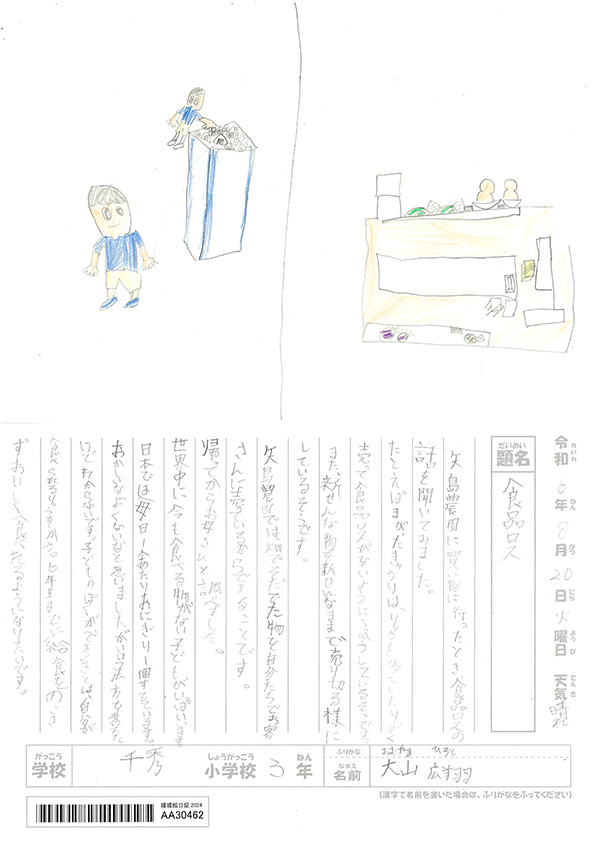 令和6年8月20日火曜日 天気晴れ
れいわ ねん がつ にち ようび てんき
だいめい
題名 食品ロス
矢島農園に買い物に行ったとき食品ロスの
話を聞いてみました。
たとえばまがたきゅうりは、
売って食品ロスがないようにくふうしているそうです。
また、新せんな物を新せんなままで売り切る様に
しているそうです。
矢島農園では畑でそだてた物を自分たちでお客
さんに売ているからできることです。
帰ってからお母さんと調べました。
世界中に今も食べる物がない子どもがいっぱいいます。
日本では毎日一人あたりおにぎり1個すています。
おかしいなよくないなと思いましたがいい方方を考た
けどわからないです。子どものぼくができることは、自分が
食べられるよう 6年生までに給食をのこ
ずおいしく食べれるようになりたいです。
がっこう しょうがっこう ねん
学校 千秀 小学校 3年
ふりがな おおやま ひろと
なまえ
名前 大山 広翔
(漢字で名前を書いた場合は、ふりがなをふってください)
環境絵日記 2024
AA30462